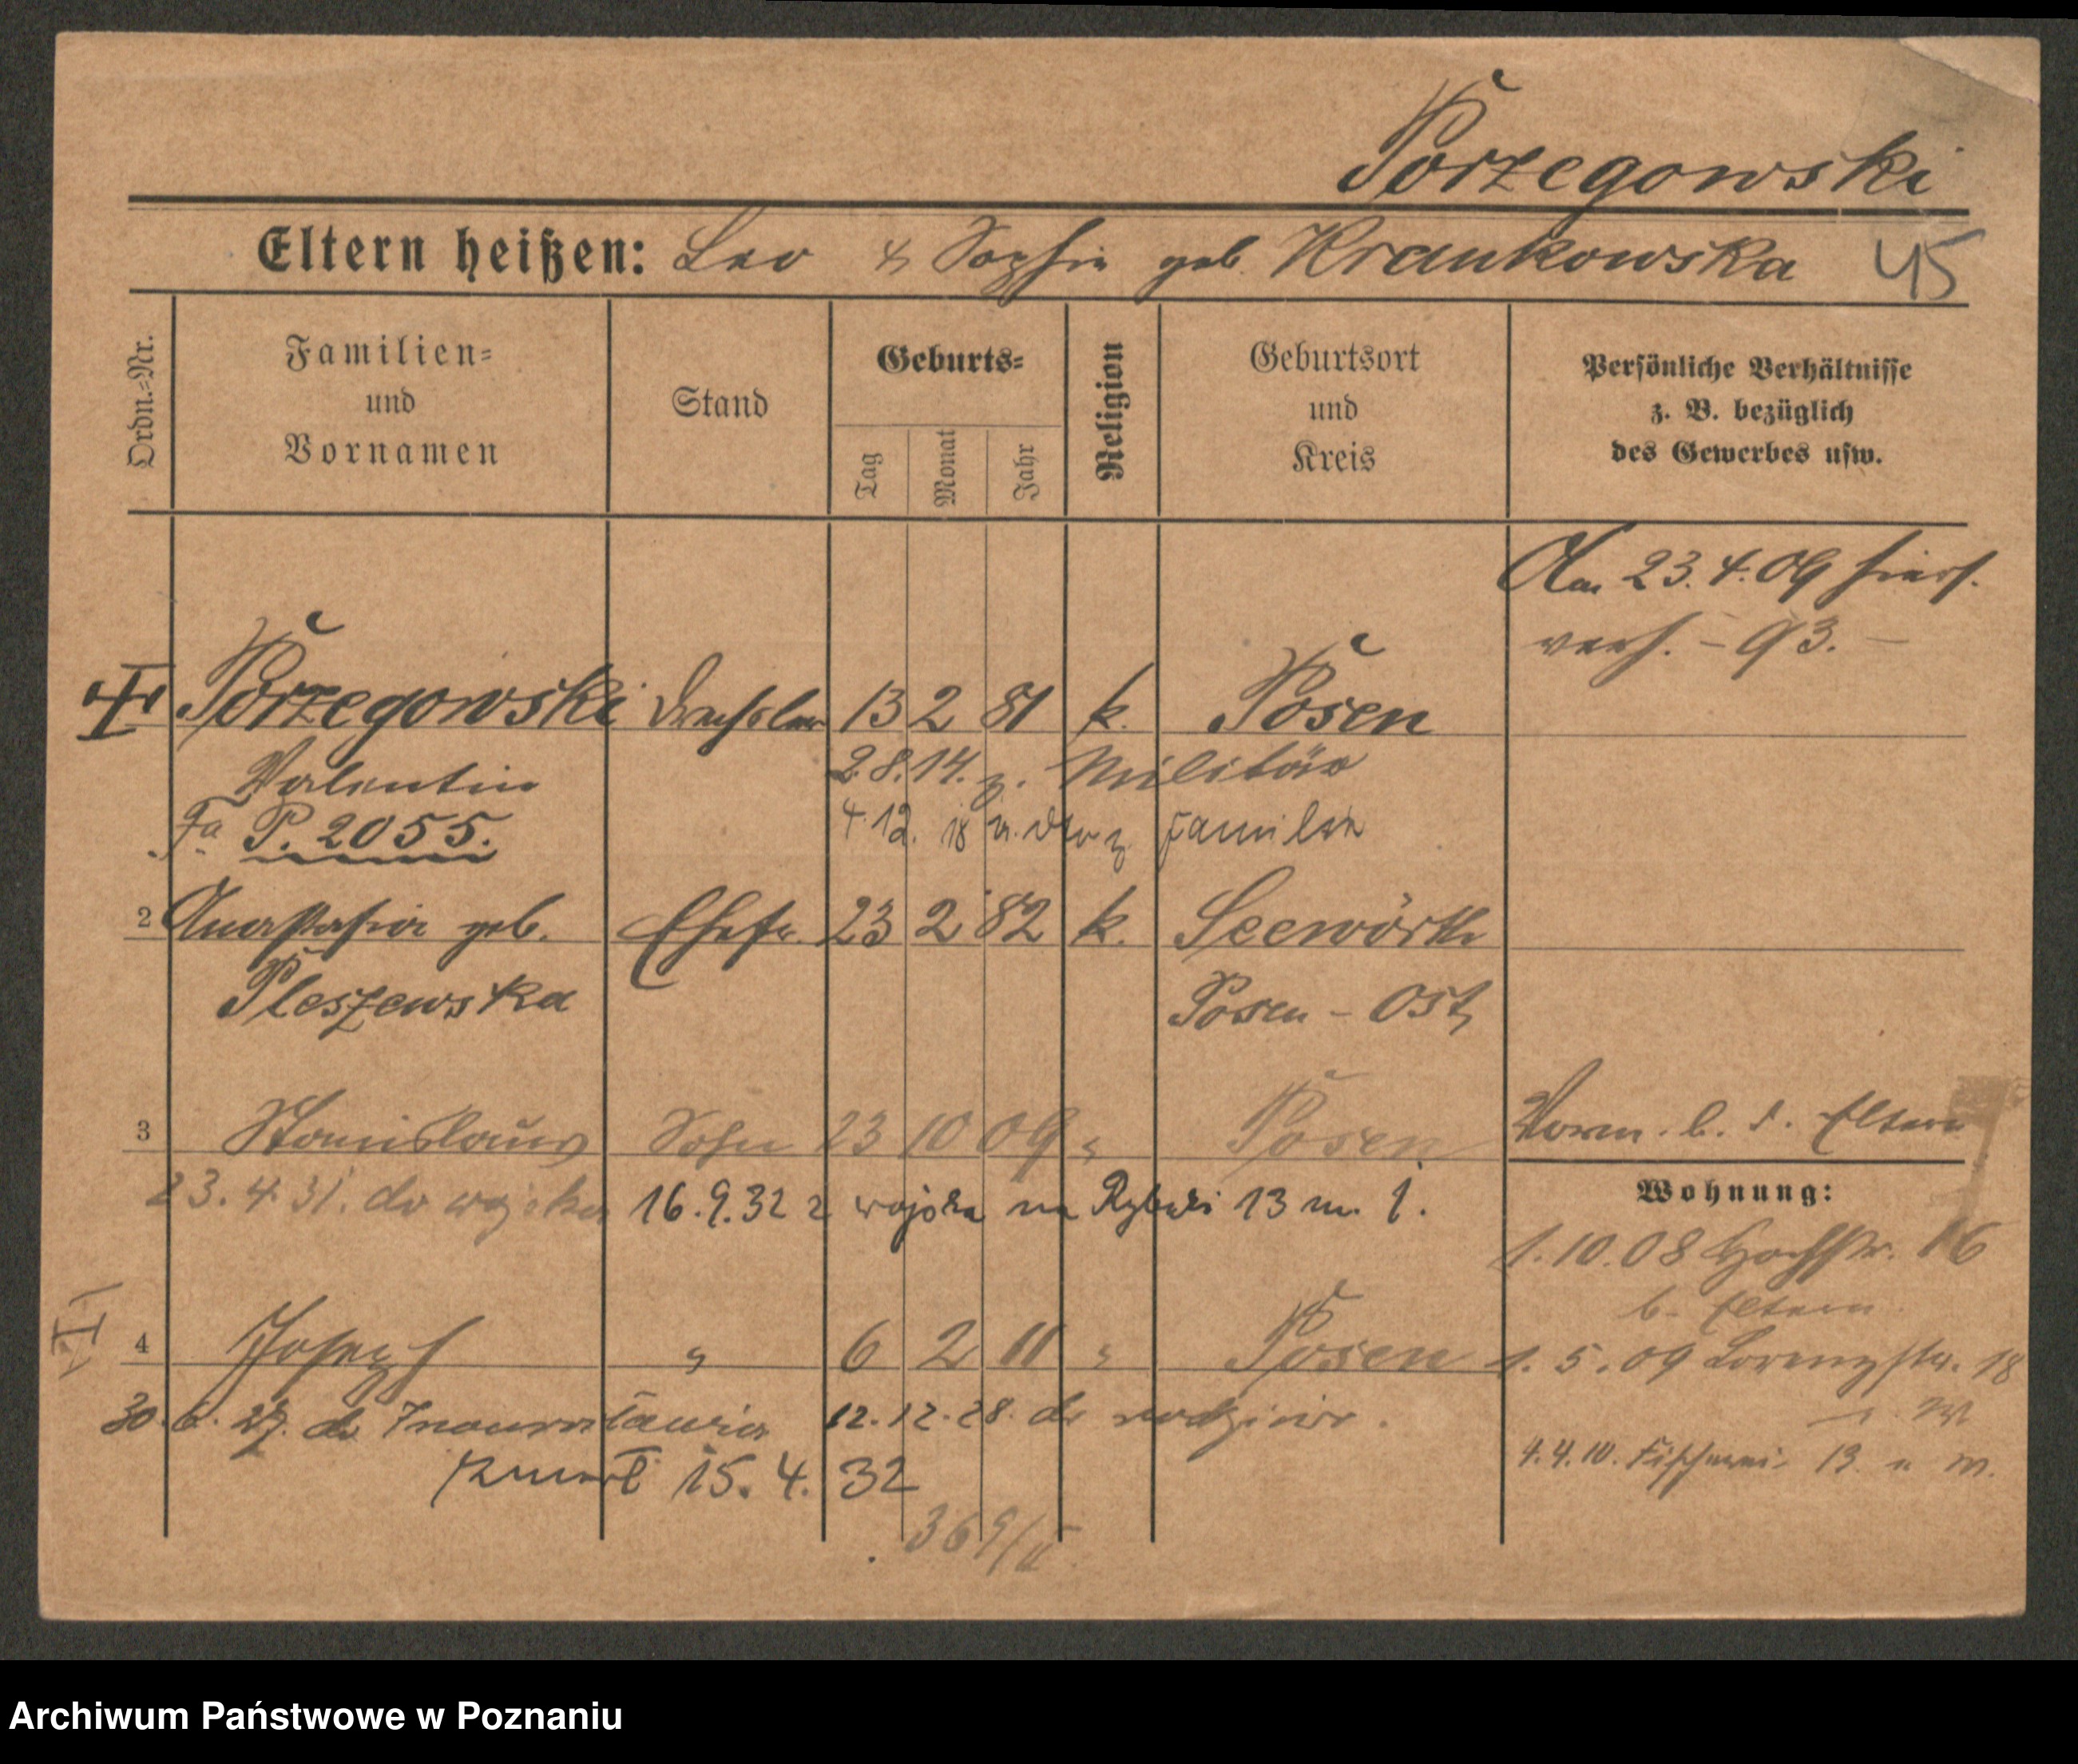 Porzegowski
Eltern heißen: Leo & Sophie geb. Krankowska 45
Ordn.=Nr.
Familien= und Vornamen
Stand
Geburts=
Tag Monat Jahr
Religion
Geburtsort und Kreis
Persönliche Verhältnisse z. B. bezüglich des Gewerbes usw.
Am 23.4.09 hiers.
verh. - 93. -
Porzegowski Drechsler 13 2 81 k. Posen
Valentin 2.8.14. z. Militär
Fa P. 2055. 4.12. 18 z. Familie
2 Anastasia geb. Ehefr. 23 2 82 k. Seewörth
Pleszewska Posen - Ost
3 Stanislaus Sohn 23 10 09 " Posen
Vorm. b. d. Eltern
23.4.31. do wojska 16.9.32 z wojska na Rybaki 13 m. 1.
Wohnung:
1.10.08 Hochstr. 16
b. Eltern
4 Joseph " 6 2 11 " Posen
1.5.09 Lorenzstr. 18
30.6.27. do Inowrocławia 12.12.28. do rodziców.
4.4.10. Fischerei 13 m.
zmarł 15.4.32
369/II
Archiwum Państwowe w Poznaniu